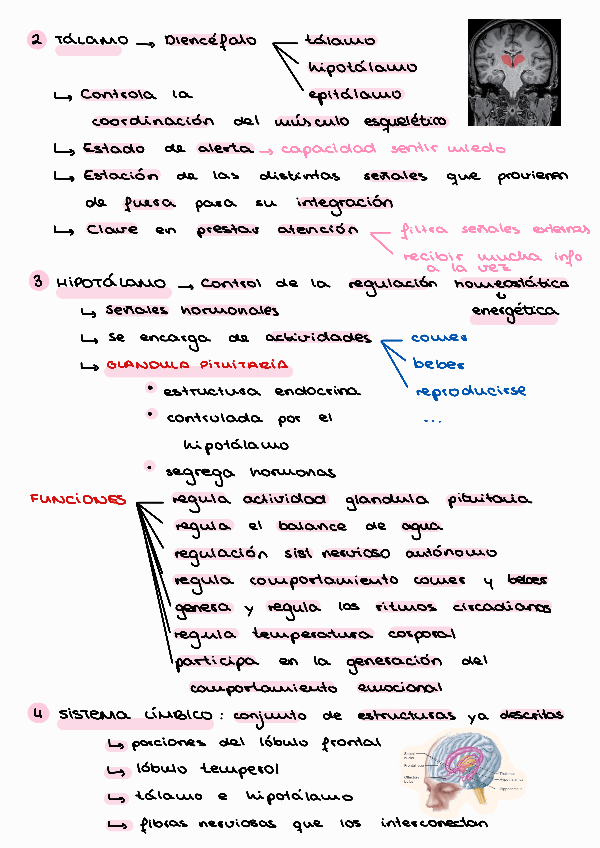 2 TÁLAMO → Diencéfalo
tálamo
hipotálamo
epitálamo
↳ Controla la
coordinación del músculo esquelético
↳ Estado de alerta → capacidad sentir miedo
↳ Estación de las distintas señales que provienen
de fuera para su integración
↳ Clave en prestar atención
filtra señales externas
recibir mucha info
a la vez
3 HIPOTÁLAMO → Control de la regulación homeostática
energética
↳ Señales hormonales
↳ Se encarga de actividades
comer
beber
reproducirse
...
↳ GLANDULA PITUITARIA
• estructura endocrina
• controlada por el
hipotálamo
• segrega hormonas
FUNCIONES
regula actividad glandula pituitaria
regula el balance de agua
regulación sist nervioso autónomo
regula comportamiento comer y beber
genera y regula los ritmos circadianos
regula temperatura corporal
participa en la generación del
comportamiento emocional
4 SISTEMA LÍMBICO: conjunto de estructuras ya descritas
↳ porciones del lóbulo frontal
↳ lóbulo temporal
↳ tálamo e hipotálamo
↳ fibras nerviosas que los interconectan